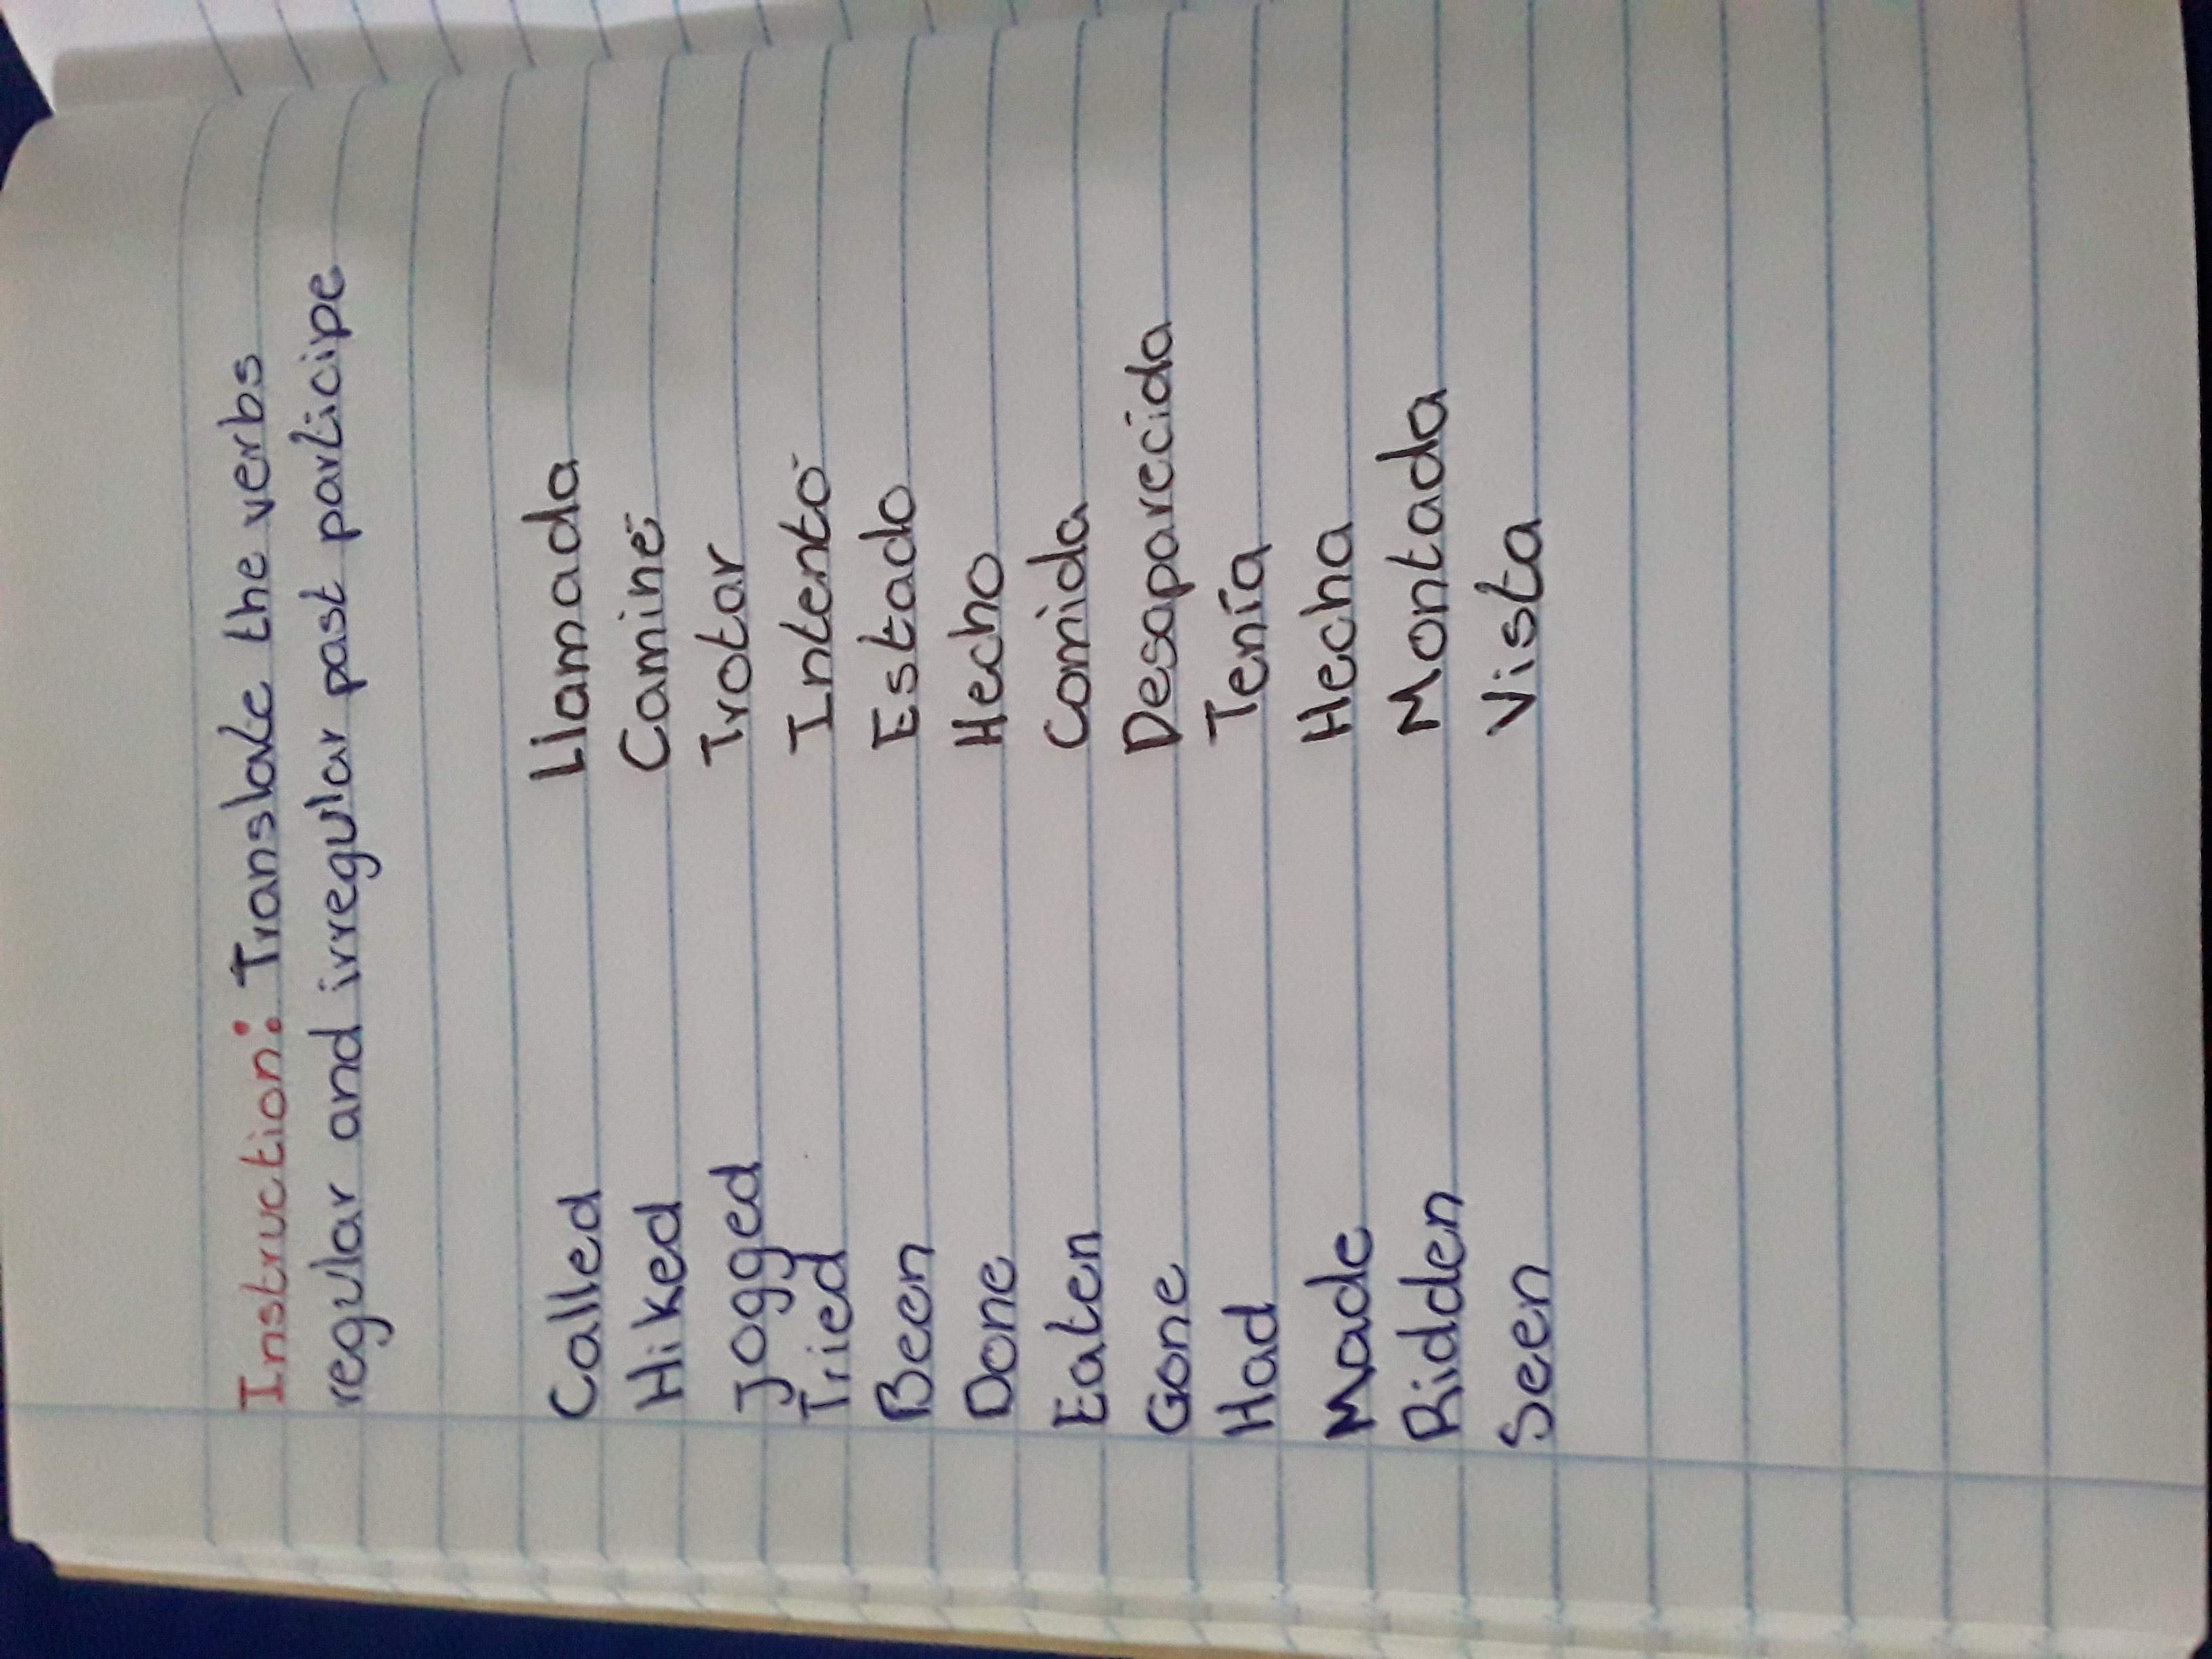 Instruction: Translate the verbs
regular and irregular past participe
Called Llamada
Hiked Caminé
Jogged Trotar
Tried Intentó
Been Estado
Done Hecho
Eaten Comida
Gone Desaparecida
Had Tenía
Made Hecha
Ridden Montada
Seen Vista